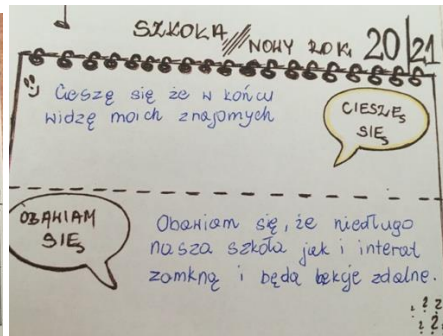 SZKOŁA /// NOWY ROK 20/21
Cieszę się że w końcu
widzę moich znajomych
CIESZĘ
SIĘ
OBAWIAM
SIĘ
Obawiam się, że niedługo
nasza szkoła jak i internat
zamkną i będą lekcje zdalne.